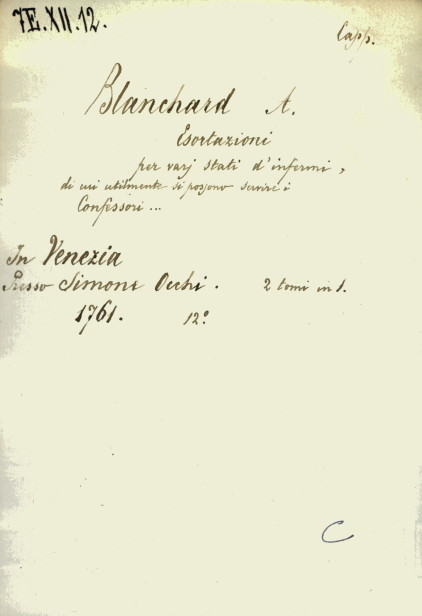 7E.XII.12.
Capp.
Blanchard A.
Esortazioni
per varj stati d'infermi,
di cui utilmente si possono servire i
Confessori...
In Venezia
Presso Simone Occhi. 2 tomi in 1.
1761. 12º
C